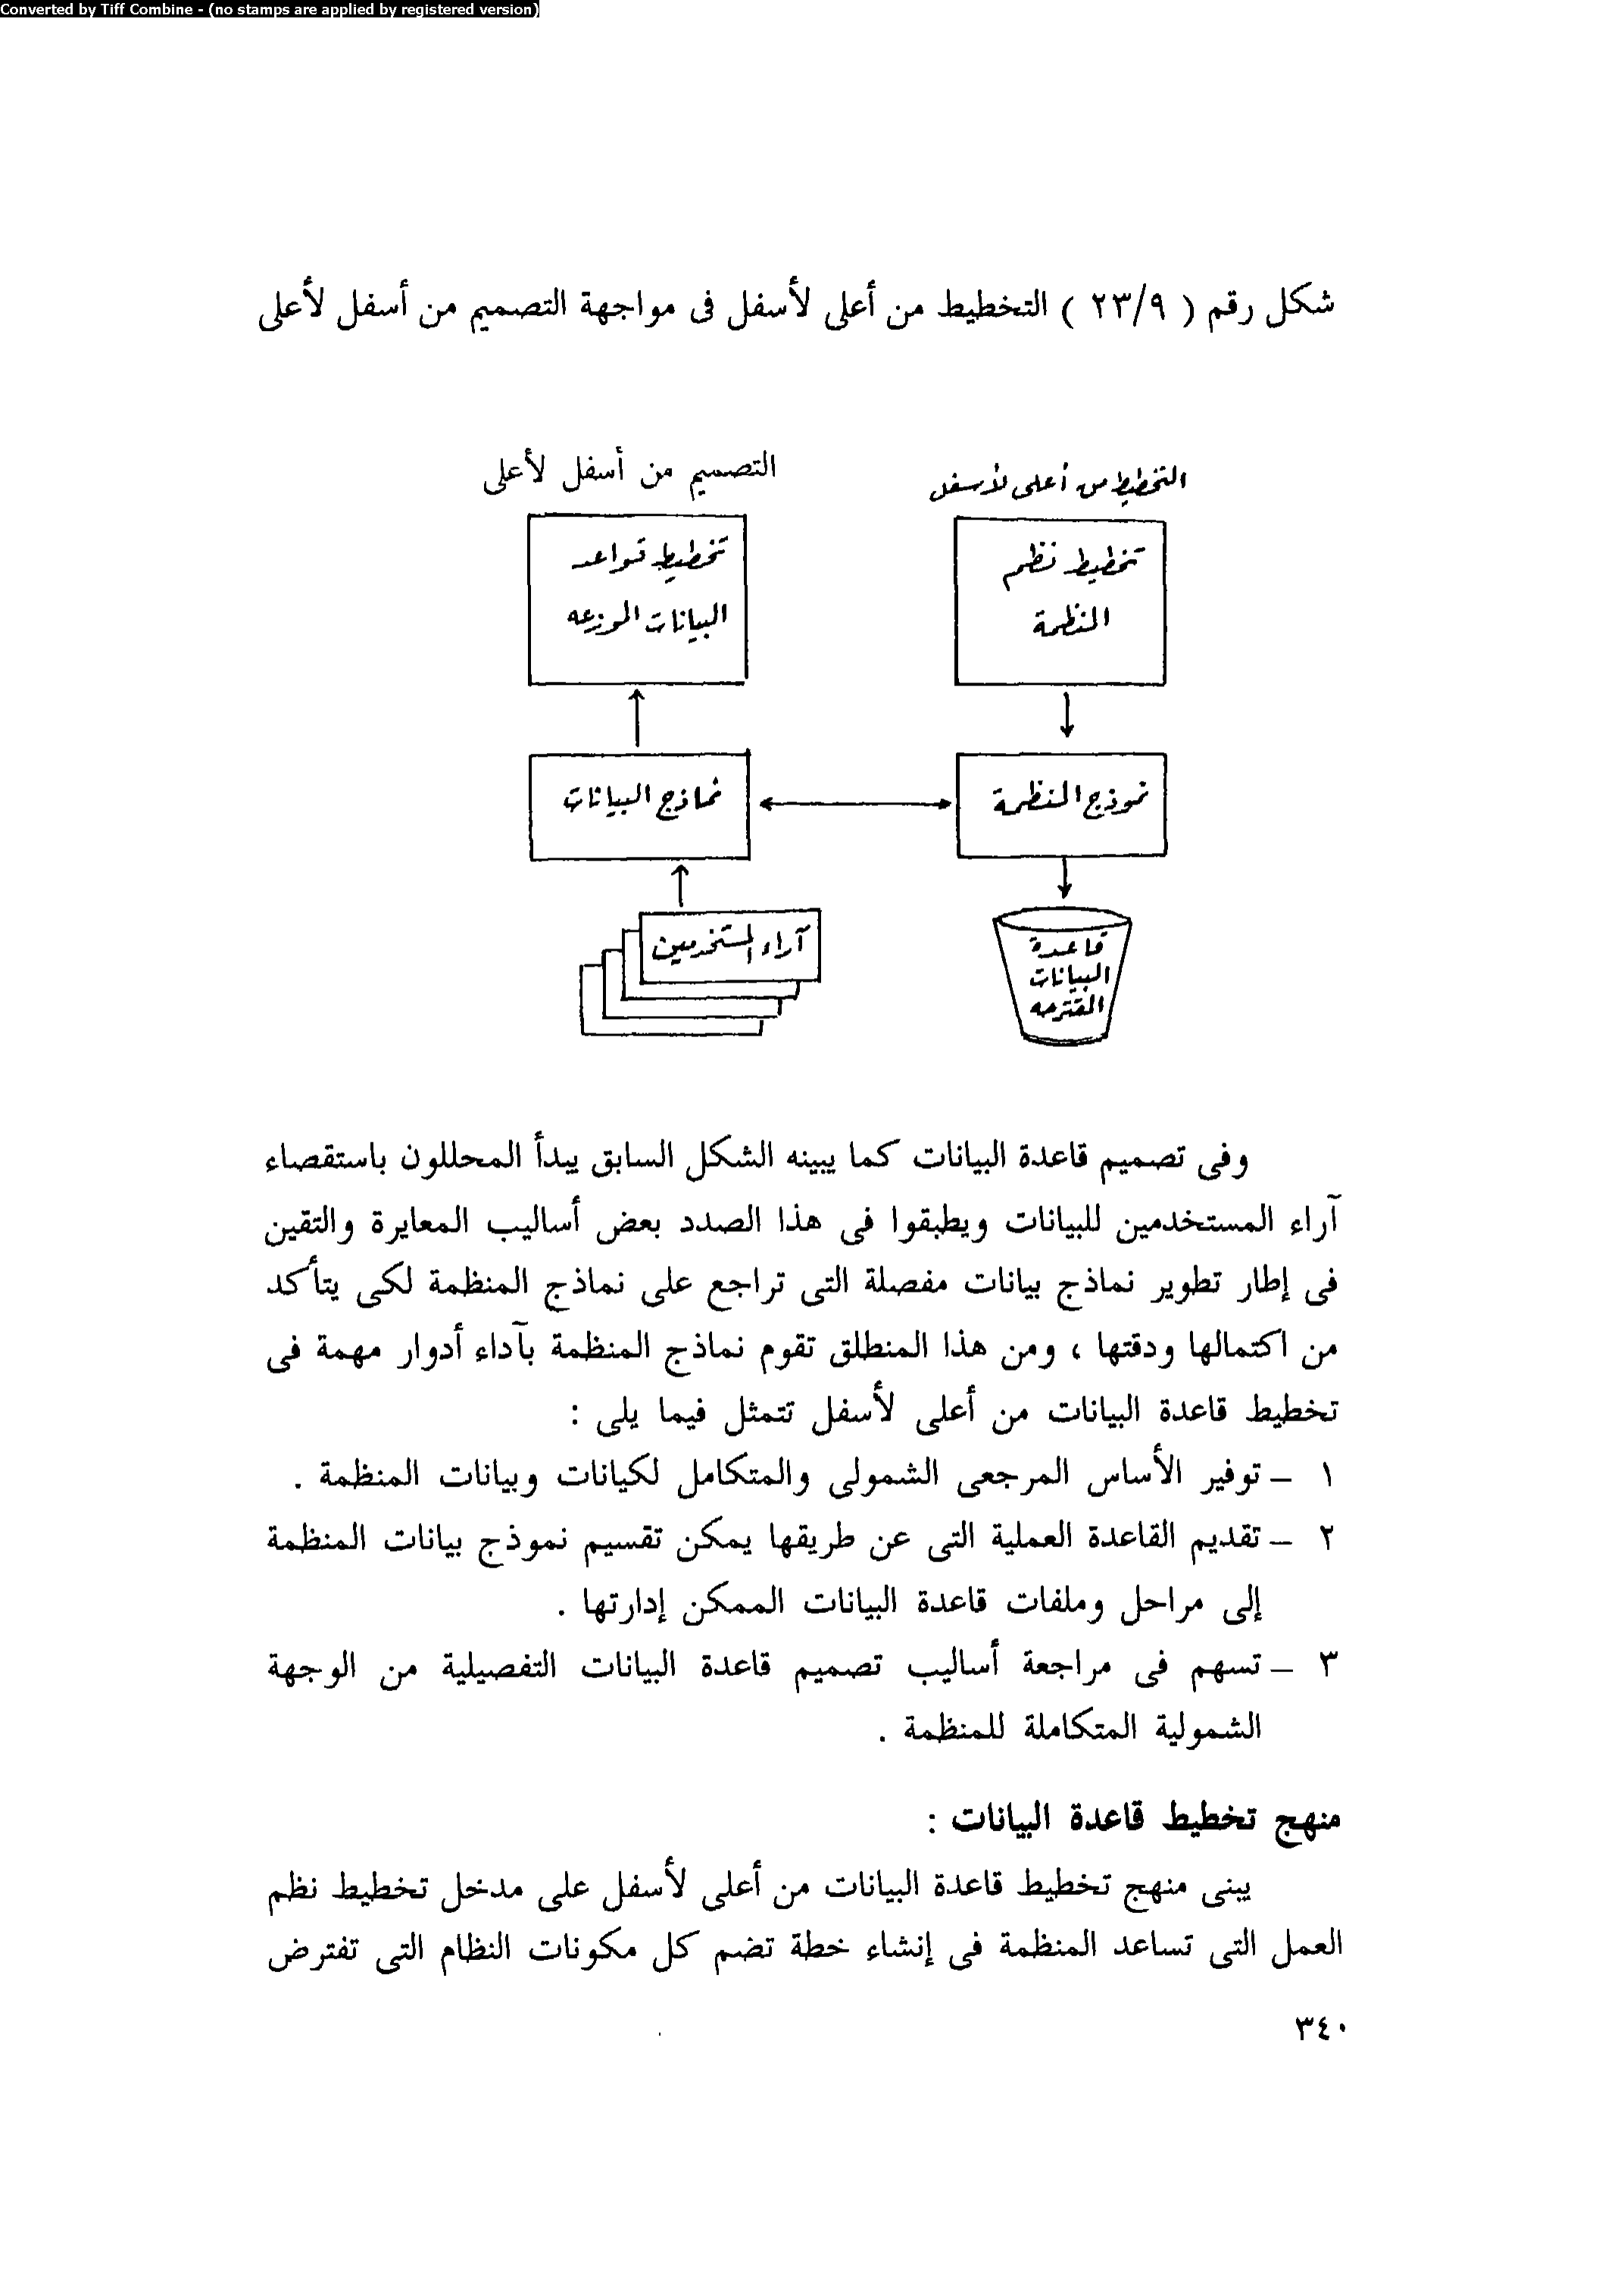 Converted by Tiff Combine - (no stamps are applied by registered version)
شكل رقم ( ٢٣/٩ ) التخطيط من أعلى لأسفل فى مواجهة التصميم من أسفل لأعلى
التخطيط من أعلى لأسفل
تخطيط نظم
المنظمة
نموذج المنظمة
قاعدة
البيانات
المقترحه
التصميم من أسفل لأعلى
تخطيط قواعد
البيانات الموزعه
نماذج البيانات
آراء المستخدمين
وفى تصميم قاعدة البيانات كما يبينه الشكل السابق يبدأ المحللون باستقصاء
آراء المستخدمين للبيانات ويطبقوا فى هذا الصدد بعض أساليب المعايرة والتقين
فى إطار تطوير نماذج بيانات مفصلة التى تراجع على نماذج المنظمة لكى يتأكد
من اكتمالها ودقتها ، ومن هذا المنطلق تقوم نماذج المنظمة بآداء أدوار مهمة فى
تخطيط قاعدة البيانات من أعلى لأسفل تتمثل فيما يلى :
١ – توفير الأساس المرجعى الشمولى والمتكامل لكيانات وبيانات المنظمة .
٢ – تقديم القاعدة العملية التى عن طريقها يمكن تقسيم نموذج بيانات المنظمة
إلى مراحل وملفات قاعدة البيانات الممكن إدارتها .
٣ – تسهم فى مراجعة أساليب تصميم قاعدة البيانات التفصيلية من الوجهة
الشمولية المتكاملة للمنظمة .
منهج تخطيط قاعدة البيانات :
يبنى منهج تخطيط قاعدة البيانات من أعلى لأسفل على مدخل تخطيط نظم
العمل التى تساعد المنظمة فى إنشاء خطة تضم كل مكونات النظام التى تفترض
٣٤٠